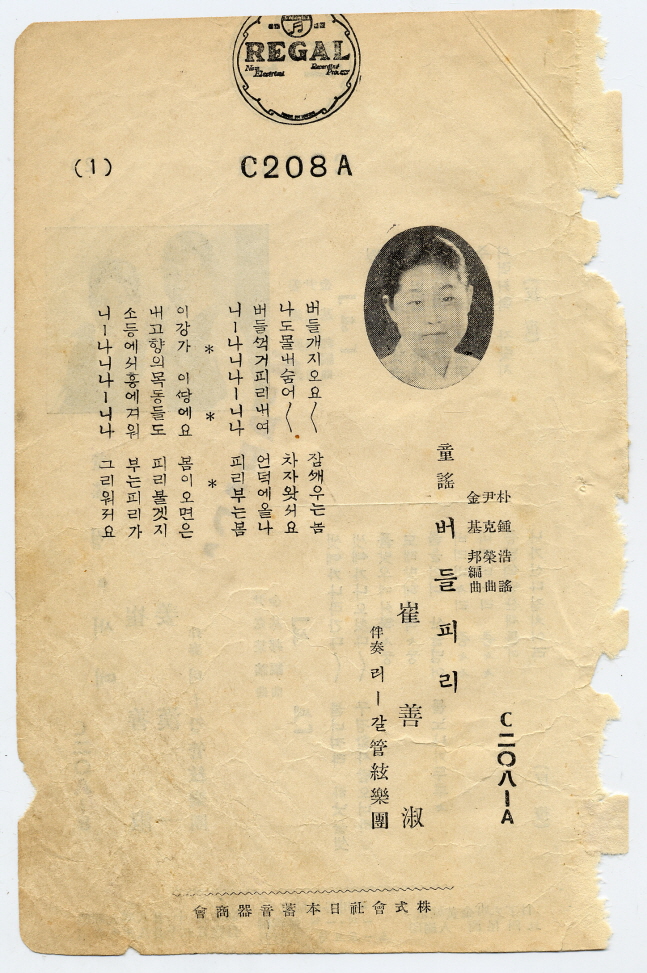 REGAL
New Electrical
Recording Process
(1)
C208A
C二〇八ーA
朴鍾浩謠
尹克榮曲
金基邦編曲
童謠 버들피리
崔善淑
伴奏 리ー갈管絃樂團
버들개지오요〱 잠ᄭᅢ우는봄
나도몰내숨어〱 차자왓서요
버들ᄭᅥᆨ거피리내여 언덕에올나
니ー나니나ー니나 피리부는봄
* * *
이강가 이ᄯᅡᆼ에요 봄이오면은
내고향의목동들도 피리불겟지
소등에서흥에겨워 부는피리가
니ー나니나ー니나 그리워저요
株式會社日本蓄音器商會